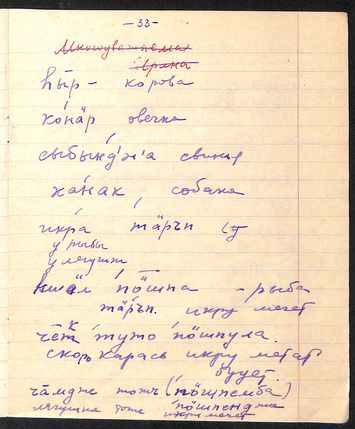 — 33 —
Многоуважаемая
Ирина
һы̄р – корова
ко́нӓр овечка
сыбы́нд'ж'а свинья
ха́нак собака
и́кра тӓръп
у рыбы
у лягушки
пӧ̄шпа – рыба
тӓ́ръп. икру мечет
туто пӧ̄шпула.
скоро карась икру метать
будет.
ча̄мдже тожч (пӧ̄шпемба)
лягушка тоже пӧшпенджа
икру мечет